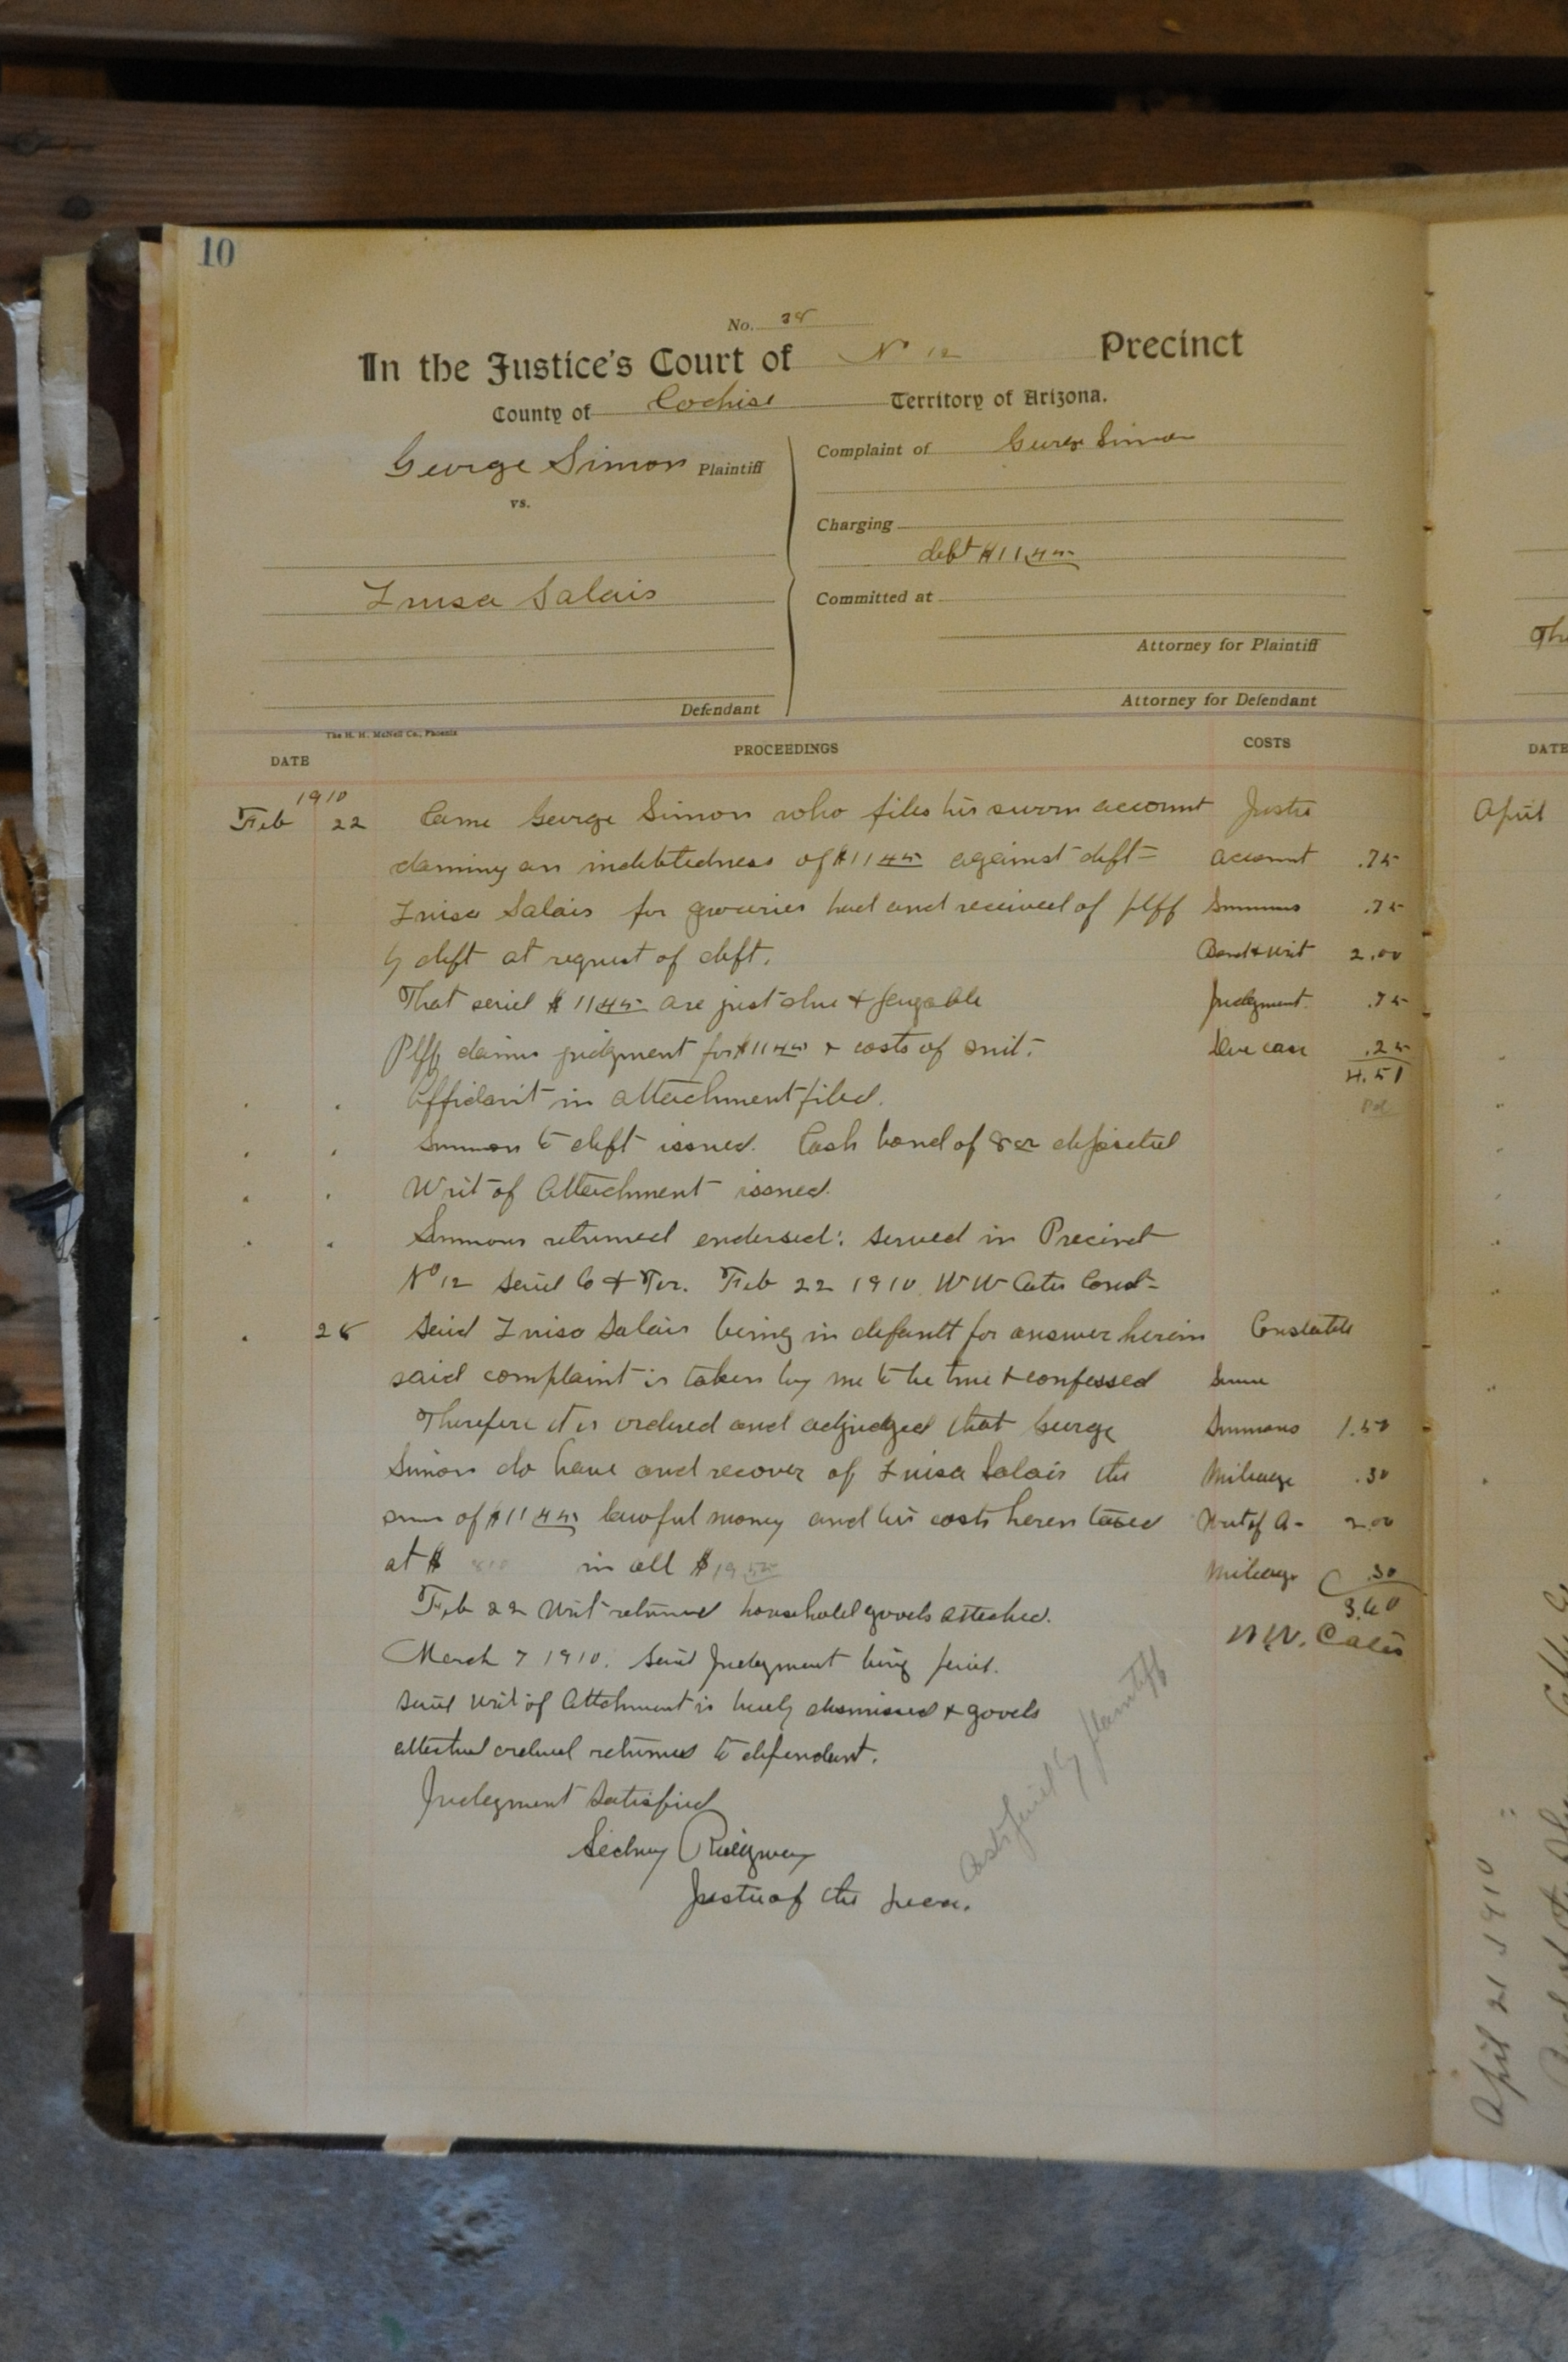 10
No. 38
In the Justice's Court of No 12 Precinct
County of Cochise Territory of Arizona.
George Simon Plaintiff
vs.
Luisa Salais
Defendant
Complaint of George Simon
Charging
debt $11 45
Committed at
Attorney for Plaintiff
Attorney for Defendant
The H. H. McNeil Co., Phoenix
DATE PROCEEDINGS COSTS
1910
Feb 22 Came George Simon who files his sworn account Justice
claming an indebtedness of $11 45 against deft account .75
Luisa Salais for groceries had and received of plff Summons .75
by deft at request of deft. Bond & writ 2.00
That said $11 45 are just due & payable Judgment .75
Plff claims judgment for $11 45 & costs of suit. .25
4.50
Pd
Affidavit in attachment filed.
Summon to deft issued. Cash bond of deposited
Writ of Attachment issued.
Summons returned endorsed: served in Precinct
No 12 said Co & Ter. Feb 22 1910 W W Cates Const
28 Said Luisa Salais being in default for answer herein Constable
said complaint is taken by me to be true & confessed
Therefore it is ordered and adjudged that George Summons 1.50
Simon do have and recover of Luisa Salais the Mileage .30
sum of $11 45 lawful money and his costs herein taxed Writ of A 2.00
at $ 8 10 in all $19 55 Mileage .30
Feb 22 Writ returned household goods attached. 3.60
March 7 1910. Said Judgment being paid. W.W. Cates
said writ of Attachment is hereby dismissed & goods
attached ordered returned to defendant.
Judgment Satisfied
Sidney Ridgway
Justice of the Peace.
Costs paid by plaintiff
DATE
April
April 21 1910